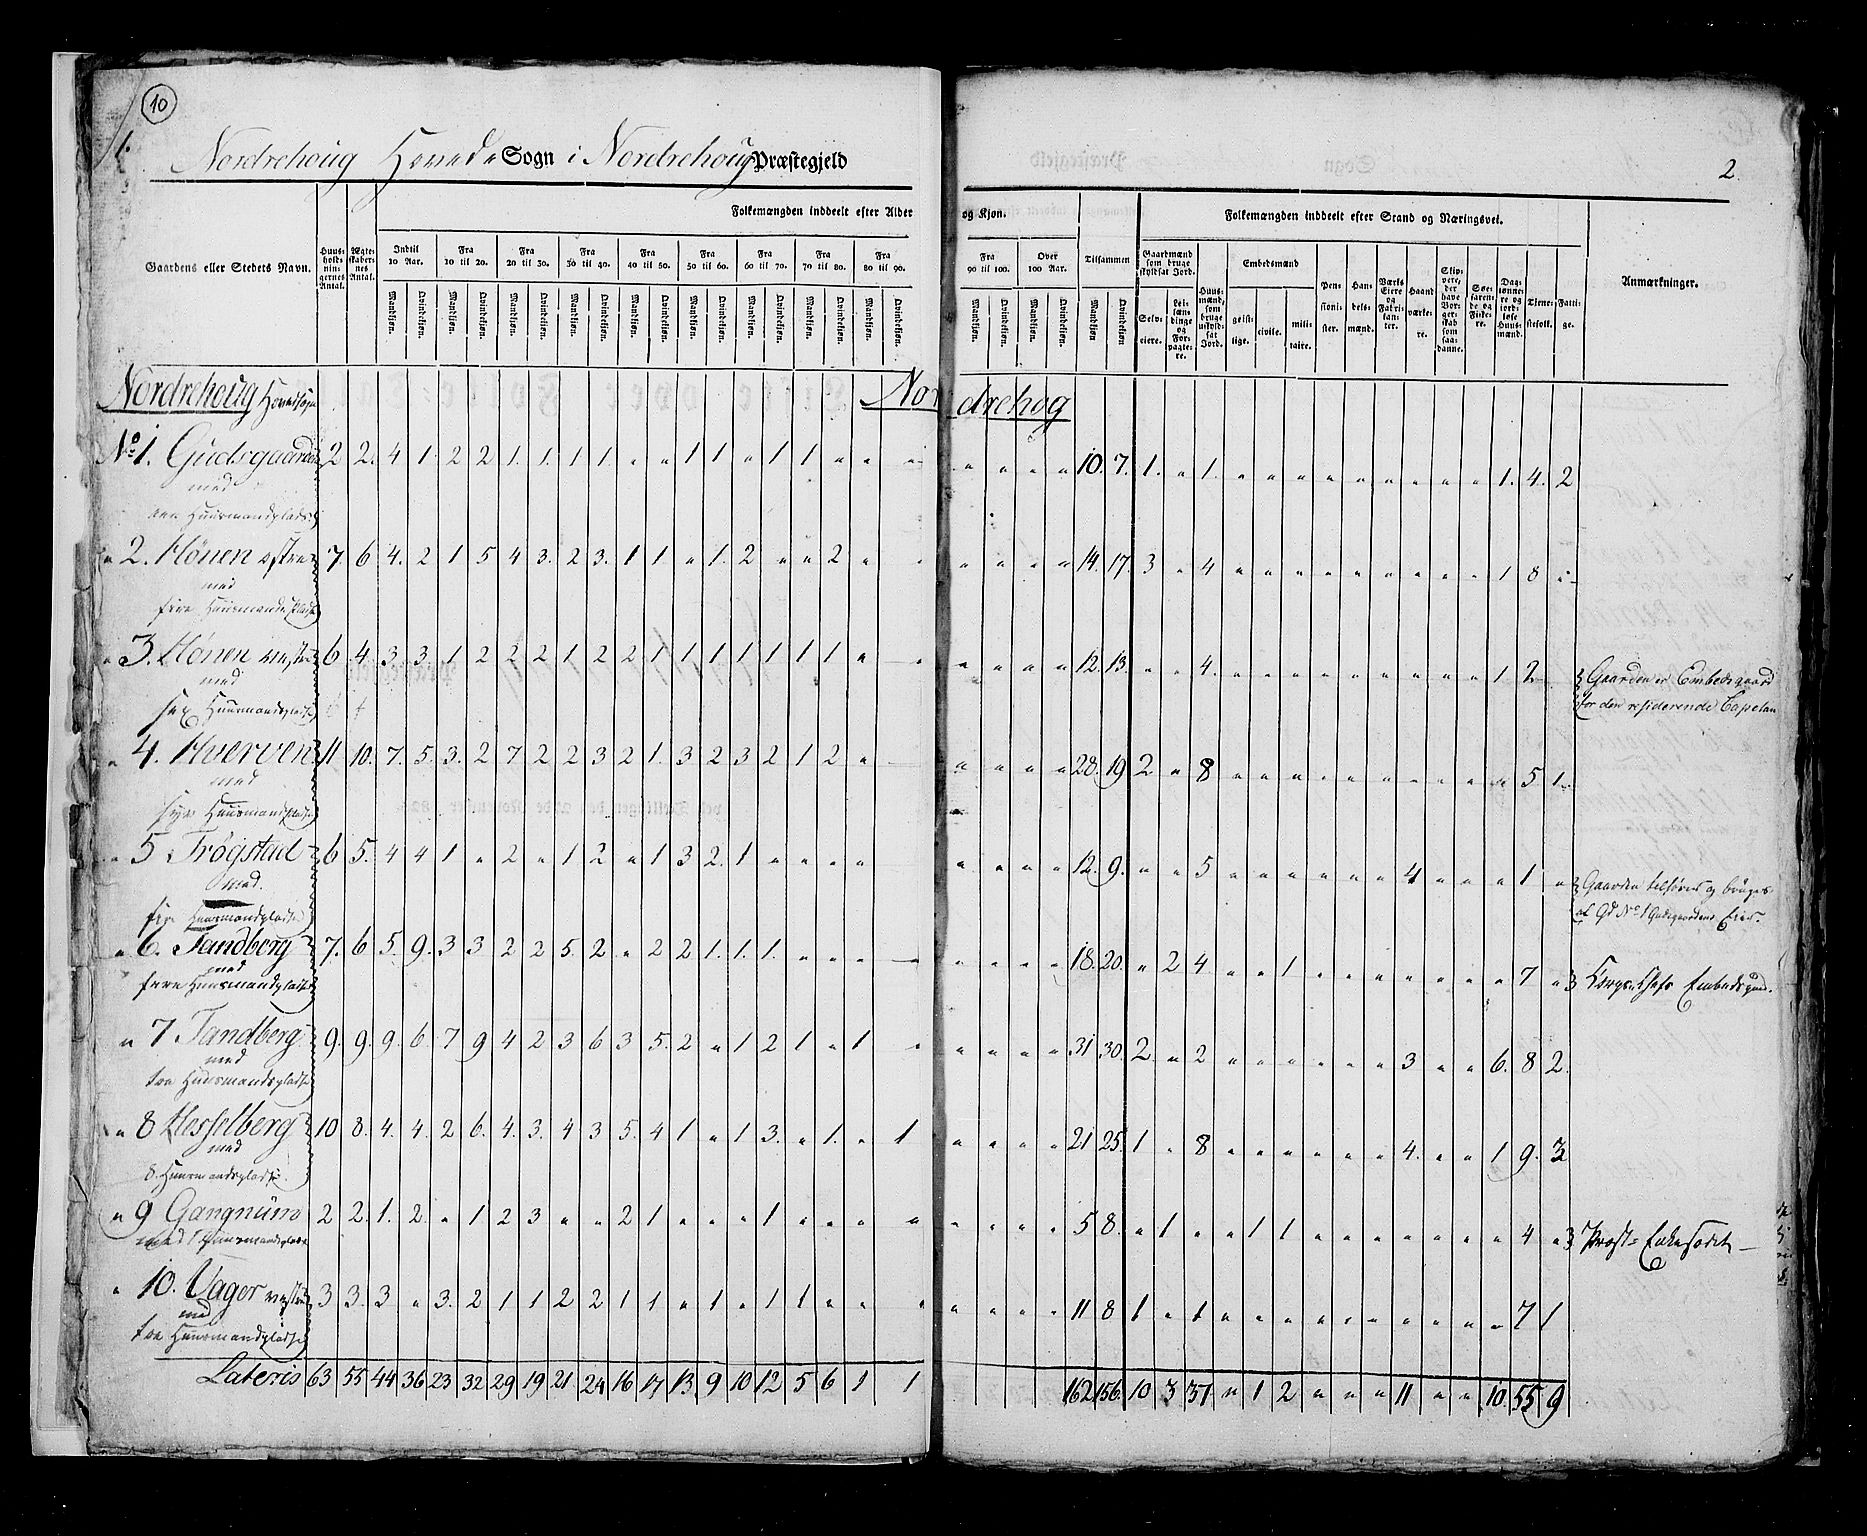 10
1.
Nordrehoug Hoveds Sogn i Nordrehoug Præstegjeld
2.
Gaardens eller Stedets Navn.
Huus-holdnin-gernes Antal.
Ægte-skaber-nes Antal.
Folkemængden inddeelt efter Alder og Kjøn.
Indtil 10 Aar.
Fra 10 til 20.
Fra 20 til 30.
Fra 30 til 40.
Fra 40 til 50.
Fra 50 til 60.
Fra 60 til 70.
Fra 70 til 80.
Fra 80 til 90.
Fra 90 til 100.
Over 100 Aar.
Tilsammen
Mandkjøn. Qvindekjøn.
Folkemængden inddeelt efter Stand og Næringsvei.
Gaardmænd som bruge skyldsat Jord.
Selv-eiere.
Lei-lændinge og For-pagte-re.
Huus-mænd, som bruge uskyld-sat Jord.
Embedsmænd
geist-lige.
civile.
mili-taire.
Pen-sioni-ster.
Han-dels-mænd.
Værks Eiere og Fabri-kanter.
Haand-værke-re.
Skip-pere, der have Bor-ger-skab som saa-danne.
Søe-faren-de og Fiske-re.
Dag-lønne-re og jord-løse Huus-mænd.
Tjene-stefolk.
Fatti-ge.
Anmærkninger.
Nordrehoug Hovedsogn Nordrehog
No 1. Gudsgaarden 2 2. 4 1. 2 2 1. 1. 1 1. " " 1 1 " 1 1 " " " " " " " 10. 7. 1. " 1. " " " " " " " " " 1. 4. 2
med
een Huusmandsplads
" 2. Hönen østre 7. 6 4. 2 1 5 4 3. 2 3. 1 1 " 1. 2 " " 2 " " " " " " 14. 17. 3 " 4 " " " " " " " " " 1 8 "
med
fire Huusmandspladse
" 3. Hönen vestre 6 4. 3. 3 1 2 2 2 1 2 2 1 1 1 1 1 1 1 " " " " " " 12. 13. " " 4. " " " " " " " " " 1 2 " Gaarden er Embedsgaard
med for den residerende Capelan
sex Huusmandspladse
" 4. Hverven 11 10. 7. 5. 3. 2 7 2 2 3 2 1. 3 2 3 2 1 2 " " " " " 28. 19 2 " 8 " " " " " " " " " " 5 1
med
syv Huusmandspladse
" 5 Trøgstad 6 5. 4 4 1 " 2 " 1 2 " 1 3 2. 1 " " " " " " " " 12. 9. " " 5 " " " " " " 4 " " " 1 " Gaarden tilhører og bruges
med. af Gd No 1 Gudsgaardens Eier.
fire Huusmandspladse
" 6. Tandberg 7. 6 5. 9. 3 3 2 2 5. 2 " 2 2 1. 1. 1. " " " " " " " " 18. 20. " 2 4 " " 1 " " " " " " " 7 " Embedsgaard.
med
fire Huusmandspladse
" 7 Tandberg 9. 9. 9. 6. 7 9 4 2 3 6 3 5. 2 " 1 2 1 " 1 " " " " " 31 30. 2 " 2 " " " " " " 3 " " 6. 8 2.
med
toe Huusmandspladse
" 8 Hesselberg 10 8. 4. 4. 2 6. 4. 3. 4 3 5. 4 1 " 1 3. " 1. " 1 " " " " 21 25. 1 " 8 " " " " " " 4. " " 1 9. 3
med
8. Huusmandspladse
" 9 Gangnum 2 2. 1. 2 " 1 2 3 " " 2 1 " " " 1 " " " " " " " " 5 8. " 1 " " 1 1 " " " " " " " 4 " Præst= Enkesædet
med 1 Huusmandsplads
" 10. Vager vestre 3 3. 3 " 3. 2 1 1 2 2 1 1 " 1 " 1 1 " " " " " " " 11 8 1 " 1 " " " " " " " " " " 7 1
med
toe Huusmandspladse
Lateris 63 55 44 36 23 32 29 19 21 24 16 17 13 9 10 12 5 6 1 1 162 156 10 3 37 " 1 2 " " " 11 " " 10. 55 9